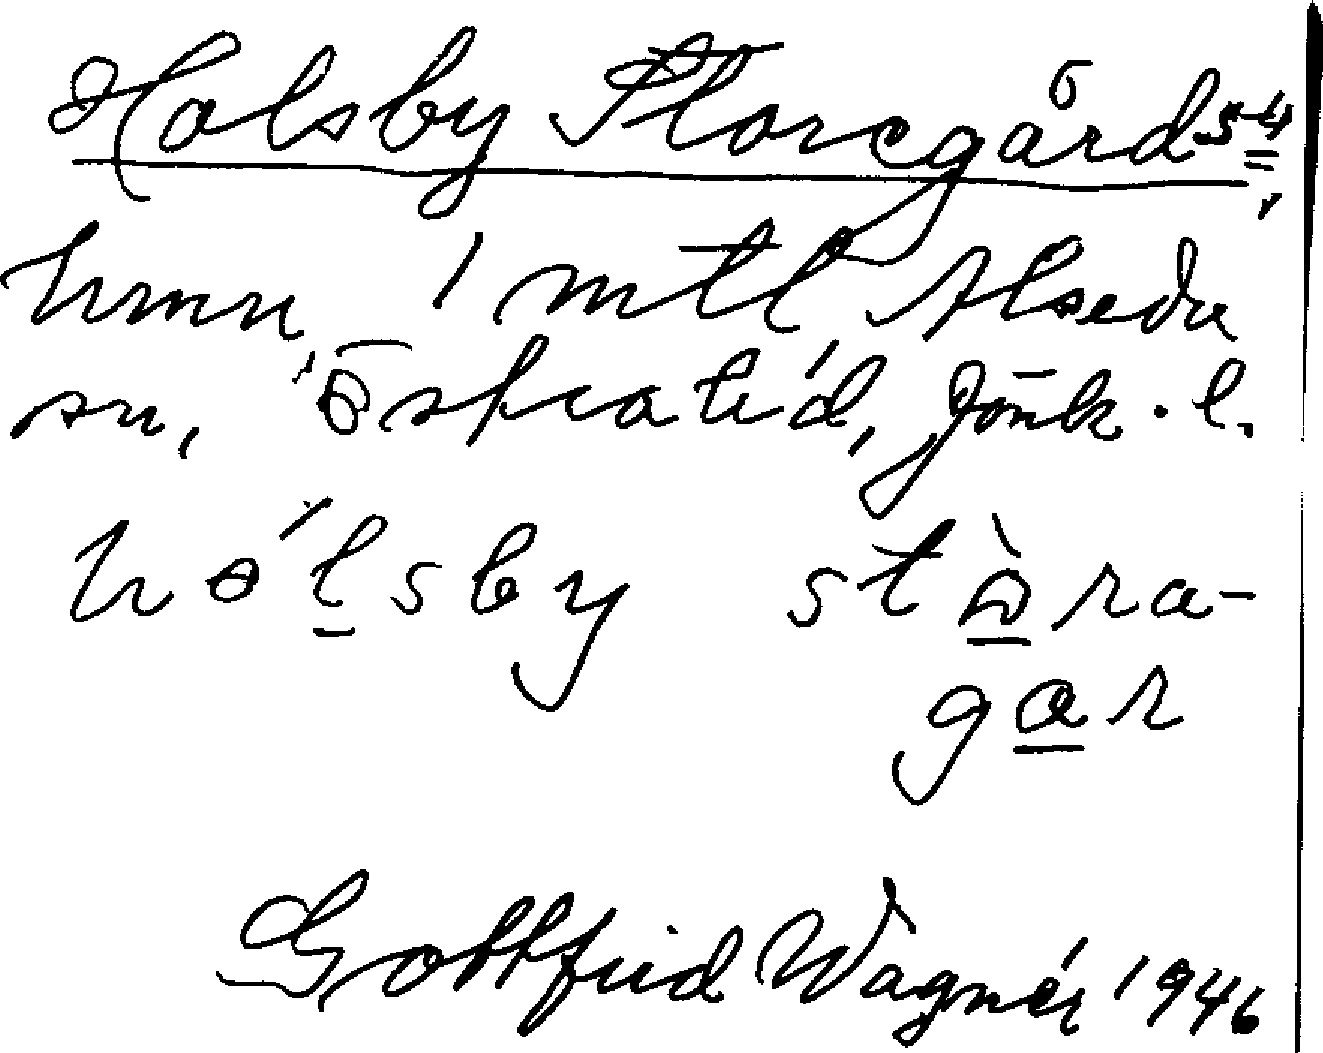 Holsby Storegård 5 4,
hmn, 1 mtl Alseda
sn, Östra hd, Jönk. l.
hólsby stòra-
gar
Gottfrid Wagnér 1946